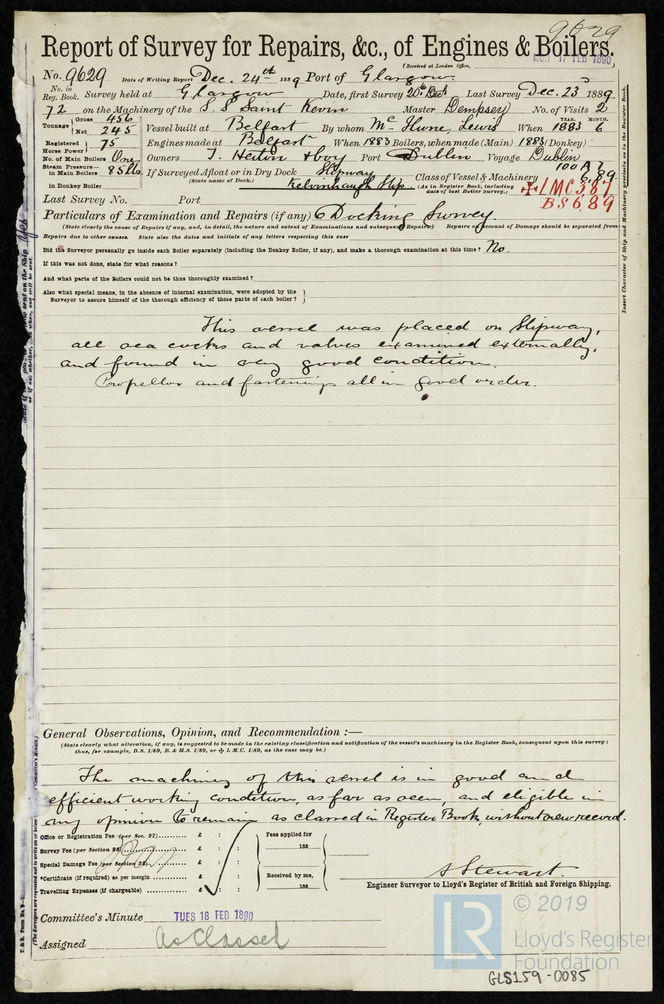 9629
Report of Survey for Repairs, &c., of Engines & Boilers.
(Received at London Office,
17 FEB 1890
No. 9629 Date of Writing Report Dec. 24th 1889 Port of Glasgow.
No. in Reg. Book. Survey held at Glasgow Date, first Survey 20th Last Survey Dec. 23 1889
72 on the Machinery of the S.S. Saint Kevin Master Dempsey No. of Visits 2
Tonnage Gross 456 Net 245 Vessel built at Belfast By whom McIlwne, Lewis When YEAR. 1883 MONTH. 6
Registered Horse Power 75 Engines made at Belfast When 1883 Boilers, when made (Main) 1883 (Donkey)
No. of Main Boilers One Owners T. Heiton & Coy Port Dublin Voyage Dublin
Steam Pressure in Main Boilers 85 lbs If Surveyed Afloat or in Dry Dock Slipway Class of Vessel & Machinery 100 A 1 6,89
in Donkey Boiler (State name of Dock.) Kelvinhaugh Slip. (As in Register Book, including date of last Boiler Survey.) ✠LMC 3,87
Last Survey No. Port BS 6,89
Particulars of Examination and Repairs (if any) Docking Survey.
(State clearly the cause of Repairs, if any, and, in detail, the nature and extent of Examinations and subsequent Repairs) Repairs on account of Damage should be separated from
Repairs due to other causes. State also the dates and initials of any letters respecting this case
Did the Surveyor personally go inside each Boiler separately (including the Donkey Boiler, if any), and make a thorough examination at this time? No.
If this was not done, state for what reasons?
And what parts of the Boilers could not be thus thoroughly examined?
Also what special means, in the absence of internal examination, were adopted by the
Surveyor to assure himself of the thorough efficiency of those parts of each boiler?
This vessel was placed on Slipway,
all sea cocks and valves examined externally,
and found in very good condition.
Propellor and fastenings all in good order.
General Observations, Opinion, and Recommendation :—
(State clearly what alteration, if any, is suggested to be made in the existing classification and notification of the vessel's machinery in the Register Book, consequent upon this survey :
thus, for example, B.S. 1/89, B. & M.S. 1/89, or ✠ L.M.C. 1/89, as the case may be.)
The machinery of this vessel is in good and
efficient working condition, as far as seen, and eligible in
my opinion to remain as classed in Register Book, without new record.
Office or Registration Fee (per Sec. 27) £ : : Fees applied for
Survey Fee (per Section 28) £ : : 188
Special Damage Fee (per Section 28) £ : :
*Certificate (if required) as per margin £ : : Received by me,
Travelling Expenses (if chargeable) £ : : 188
A Stewart.
Engineer Surveyor to Lloyd's Register of British and Foreign Shipping.
Committee's Minute TUES 18 FEB 1890
Assigned As Classed
Insert Character of Ship and Machinery precisely as in the Register Book.
© 2019
LR Lloyd's Register
Foundation
GLS159-0085